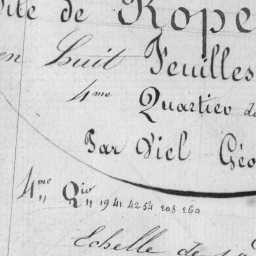 ite de Rope
en huit Feuilles
4me Quartier de
Par Viel Géo
4me Qier
" " 19 41 42 54 208 260
Echelle de